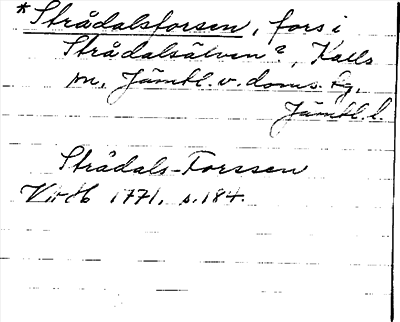 *Strådalsforsen, fors i
Strådalsälven?, Kalls
sn, Jämtl. v. doms. tg,
Jämtl. l.
Strådals-Forssen
VittH 1771, s. 184.